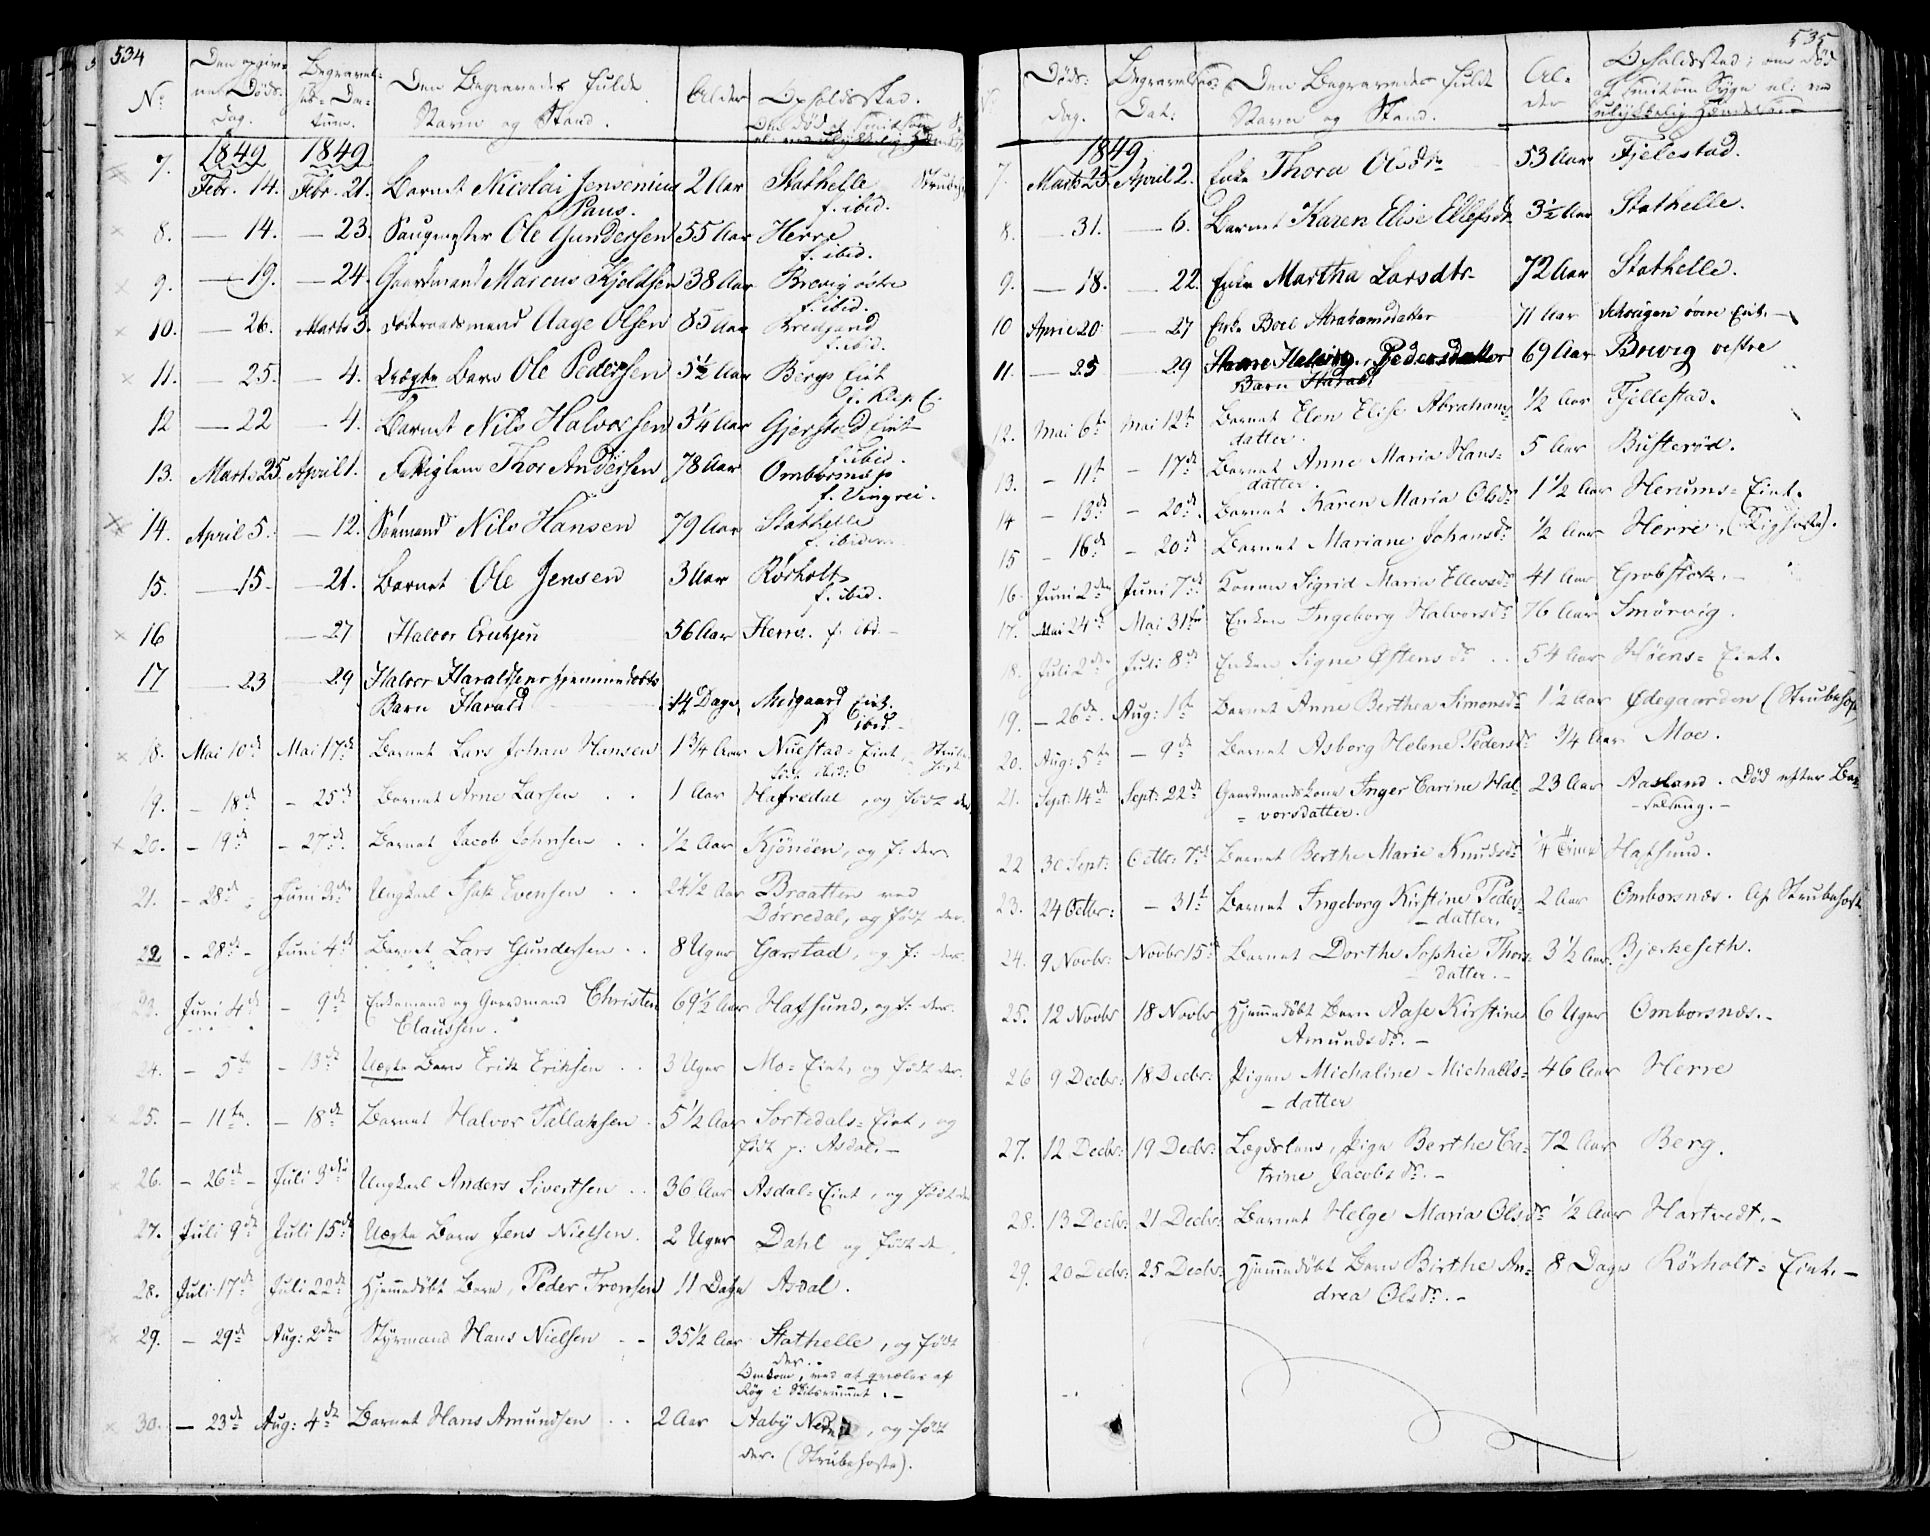 534
No
Den opgivne Døds-Dag.
Begravelses-Datum.
Den Begravedes fulde Navn og Stand.
Alder
Opholdssted.
1849 1849
7. Febr. 14. Febr. 21. Barnet Nicolai Jensenius 2 Aar Stathelle
Paus. f. ibid.
8. — 14. — 23. Saugmester Ole Gundersen 55 Aar Herre
f. ibid.
9. — 19. — 24. Gaardmand Marcus Kjeldsen 38 Aar Brevig østre
f. ibid.
10. — 26. Marts 3. Aage Olsen 85 Aar
f. ibid.
11. — 25. — 4. Uægte Barn Ole Pedersen 5½ Aar Bergs Eiet
12 — 22 — 4. Barnet Nils Halvorsen 3¼ Aar Gjerstad Eiet
f. ibid.
13. Marts 25. April 1. Thor Andersen 78 Aar Ombornæs
f.
14. April 5. — 12. Sømand Nils Hansen 79 Aar Stathelle
f. ibidem
15. — 15. — 21. Barnet Ole Jensen 3 Aar Rørholt
f. ibid.
16 — 27 Halvor Eriksen 36 Aar Herre. f. ibd. —
17 — 23 — 29 Halvor Haraldsens hjemmedøbte
Barn Harald 14 Dage, Eiet.
ibid —
18. Mai 10de Mai 17de Barnet Lars Johan Hansen 1¾ Aar Nuestad-Eiet,
født ibid:
19. — 18de — 25de Barnet Arne Larsen . . 1 Aar Hafredal, og født der
20. — 19de — 27de Barnet Jacob Johnsen . . ½ Aar Kjønøen, og f: der
21. — 28de Juni 3die Ungkarl Isak Evensen . . 24½ Aar Braatten ved
Dørredal, og født der.
22. — 28de — Juni 4de Barnet Lars Gundersen . . 8 Uger Garstad, og f: der.
23. Juni 4de — 9de Enkemand og Gaardmand Christen 69½ Aar Hafsund, og f: der.
Claussen.
24. — 5te — 13de Uægte Barn Erik Eriksen . . 3 Uger Mo-Eiet, og født der.
25. — 11te — 18de Barnet Halvor Tallaksen . 5½ Aar Sortedals-Eiet, og
født p: Asdal. —
26. — 26de — Juli 3die Ungkarl Anders Sivertsen . . 36 Aar Asdal-Eiet, og født der
27. Juli 9de Juli 15de Uægte Barn Jens Nielsen. 2 Uger Dahl og født de
28. Juli 17de Juli 22de Hjemmedøbt Barn, Peder Tronsen 11 Dage Asdal.
29. — 29de Aug: 2den Styrmand Hans Nielsen — 35½ Aar Stathelle, og født
der.
Omkom, ved at qvæles af
Røg i Skibsrummet. —
30. — 23de Aug: 4de Barnet Hans Amundsen . . 2 Aar Aaby Nedre, og født
der. (Strubehoste).
535
Døds-Dag.
Begravelses-Dat:
Den Begravedes fulde Navn og Stand.
Alder
Opholdssted; om død
af smitsom Syge el: ved
ulykkelig Hændelse. —
1849
7. Marts 25. April 2. Enke Thora Olsdtr 53 Aar Fjelestad.
8. — 31. — 6. Barnet Karen Elise Ellefsdr 3½ Aar Stathelle.
9. — 18. — 22. Enke Martha Larsdtr 72 Aar Stathelle.
10 April 20 — 27 Enke Boel Abrahamsdatter 71 Aar øvre Eiet. —
11. — 25 — 29 Pedersdatter 69 Aar Brevig vestre
12. Mai 6te Mai 12te Barnet Elen Elise Abrahams-
datter. ½ Aar Fjellestad.
13. — 11te — 17de Barnet Anne Maria Hans-
datter. 5 Aar Busterød.
14 — 13de — 20de. Barnet Karen Maria Olsdr 1½ Aar Herums-Eiet.
15 — 16de — 20de Barnet Mariane Johansdr ½ Aar Herre, (Kighoste).
16. Juni 2den Juni 7de Konen Sigrid Maria Ellevsdr 41 Aar Grobstok. —
17. Mai 24de Mai 31te Enken Ingeborg Halvorsdr 76 Aar Smørvig.
18. Juli 2den Juli 8de Enken Signe Østensdr . . 54 Aar Høens-Eiet.
19. — 26de. Aug: 1te Barnet Anne Berthea Simonsdr 1½ Aar Ødegaarden (Strubehoste
20. Aug: 5te — 9de Barnet Asborg Helene Pedersdr ¾ Aar Moe.
21. Sept: 14de Sept: 22de Gaardmandskone Inger Carine Hal-
vorsdatter. 23 Aar Aasland. Død efter Bar-
selseng. —
22 30 Sept: Octbr: 7de Barnet Berthe Marie Knudsdr ¼ Time Hafsund.
23. 24 Octbr: — 31te Barnet Ingeborg Kirstine Peders-
datter. 2 Aar Ombornæs. Af Strubehoste
24. 9 Novbr: Novbr 15de Barnet Dorthe Sophie Thors-
datter. — 3½ Aar. Bjerkeseth.
25. 12 Novbr 18 Novbr Hjemmedøbt Barn Aase Kirstine 6 Uger Ombornæs. —
Amundsdr. —
26 9 Decbr: 18 Decbr: Pigen Michaline Michaels-
datter 46 Aar Herre
27. 12 Decbr: 19 Decbr: Lægdslem, Pige Berthe Ca-
trine Jacobsdr. — 72 Aar Berg.
28. 13 Decbr: 21 Decbr: Barnet Helge Maria Olsdr ½ Aar Hartvedt. —
29. 20 Decbr: 25 Decbr: Hjemmedøbt Barn Birthe An-
drea Olsdr. — 8 Dage Rørholt-Eiet. —